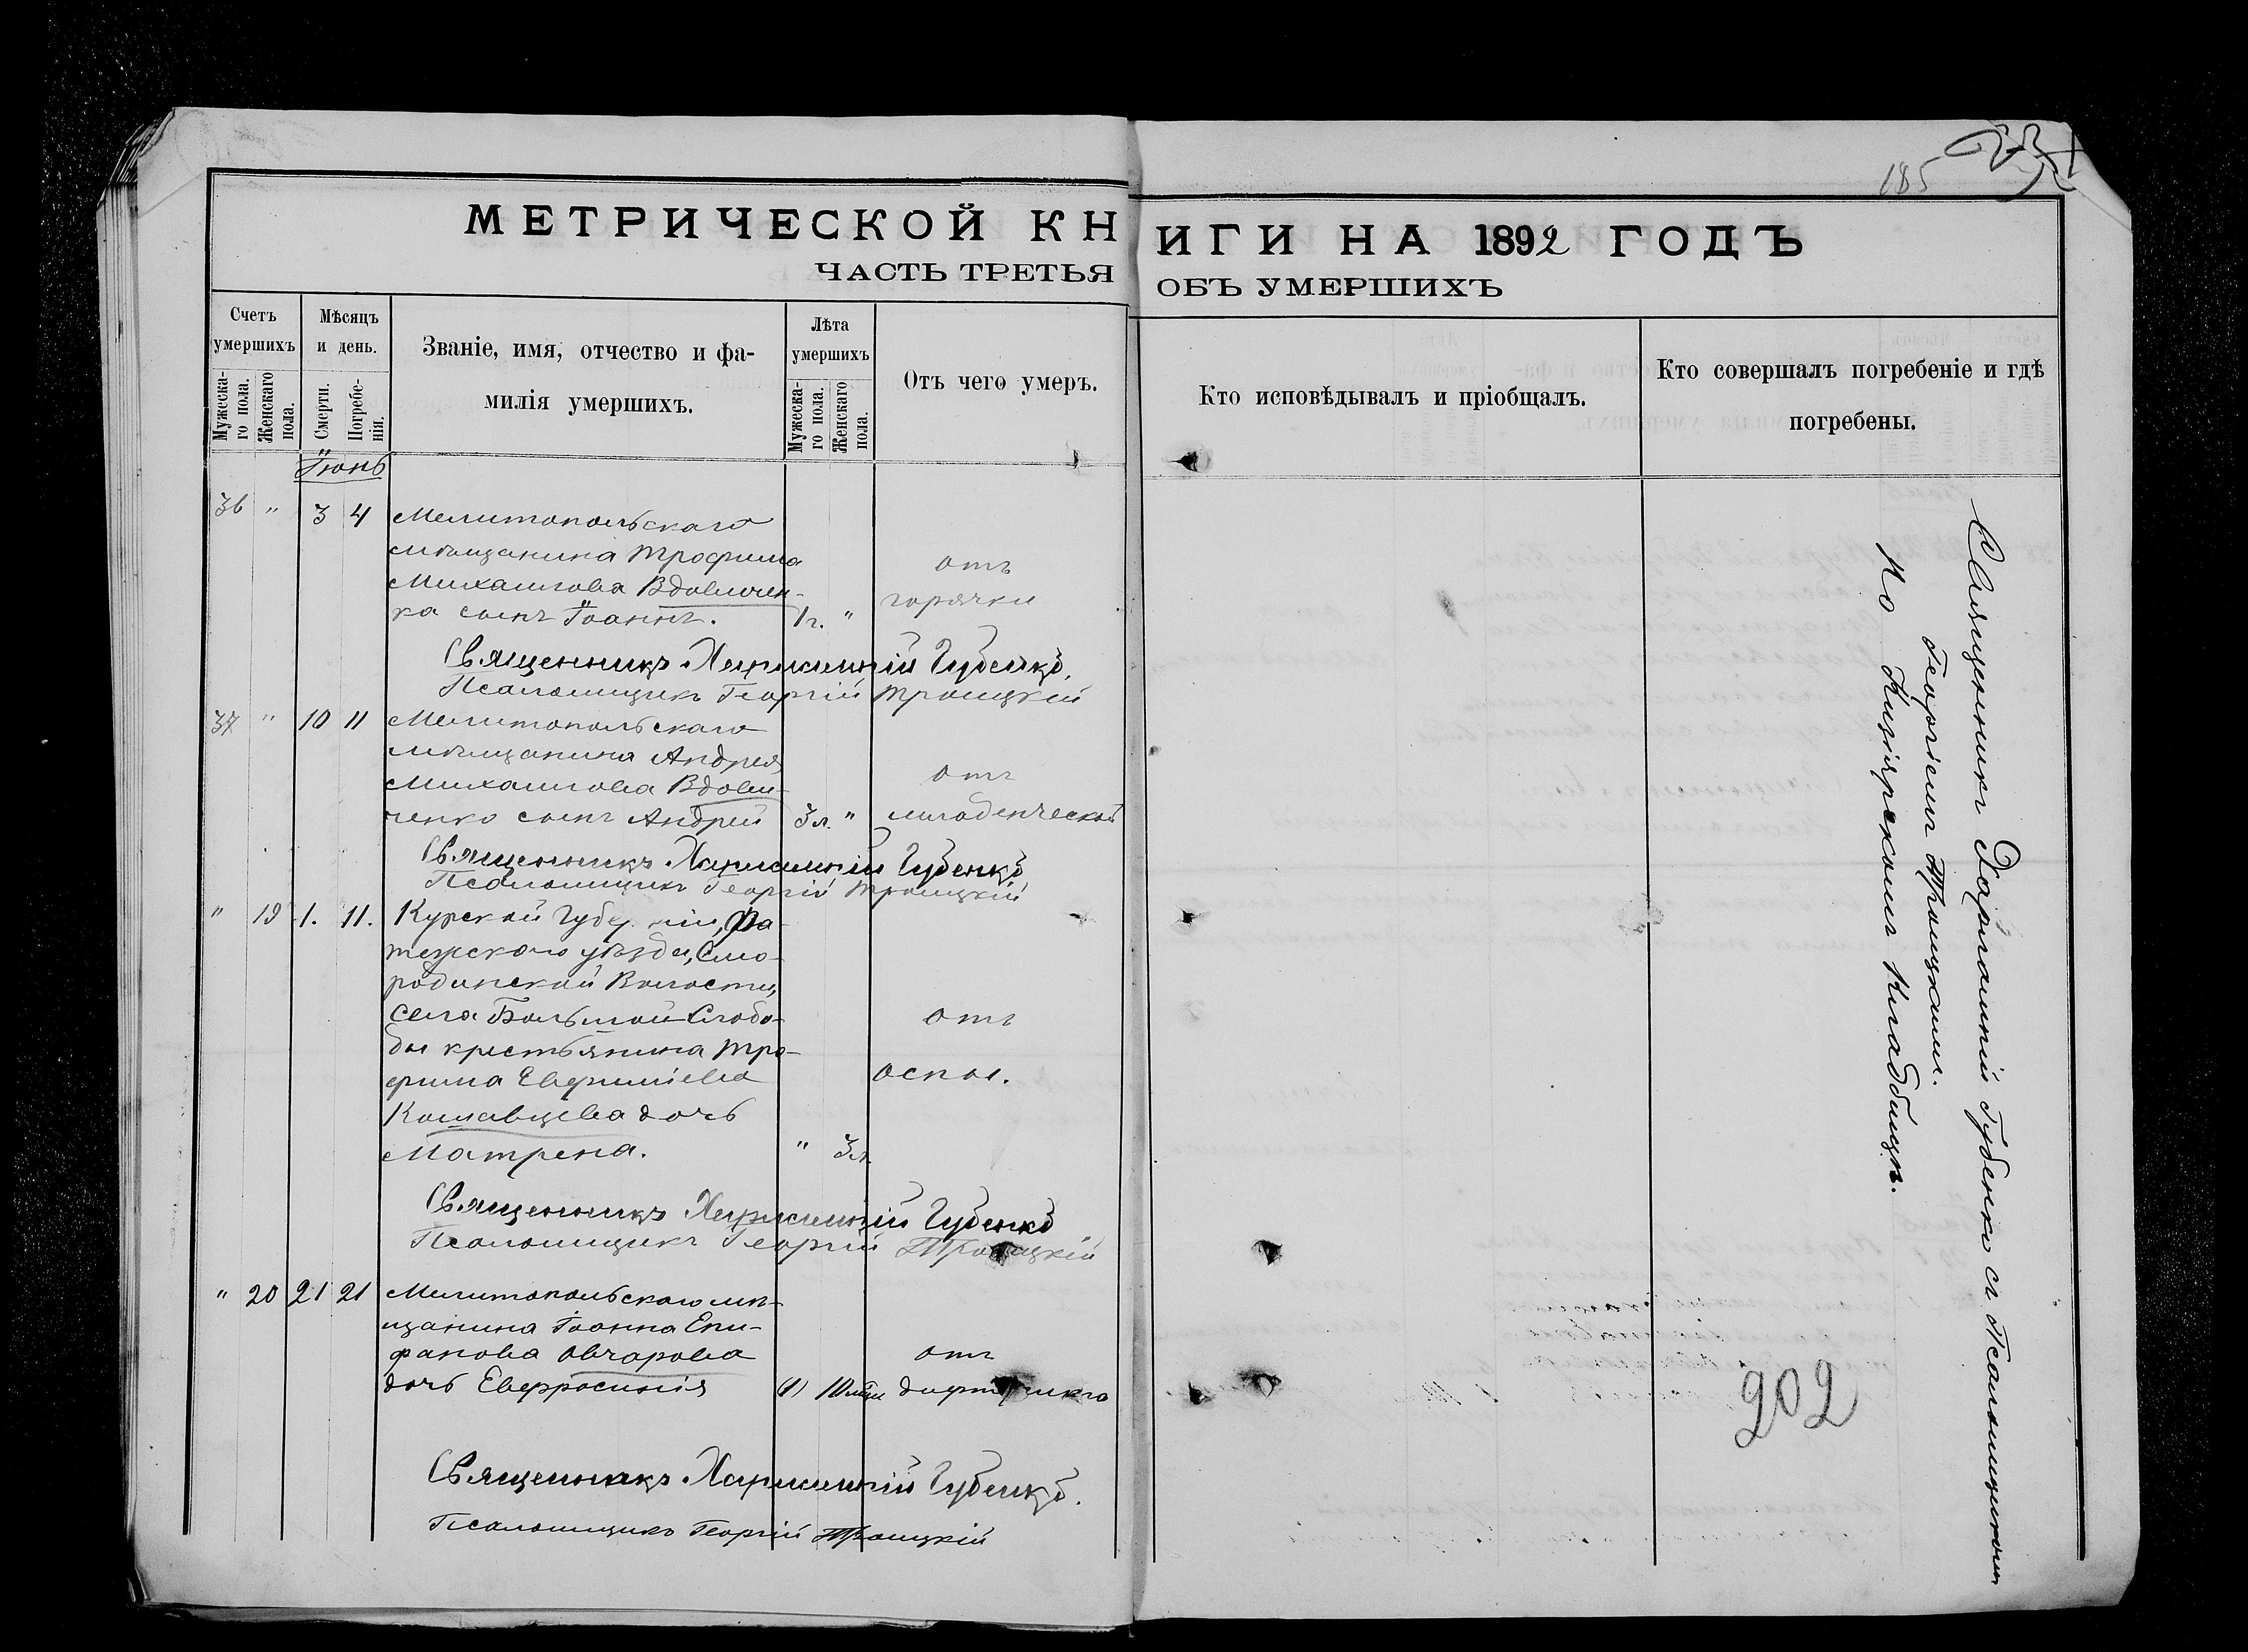 185
МЕТРИЧЕСКОЙ КНИГИ НА 1892 ГОДЪ
ЧАСТЬ ТРЕТЬЯ ОБЪ УМЕРШИХЪ
Счетъ умершихъ
Мужеска-го пола.
Женскаго пола.
Мѣсяцъ и день.
Смерти.
Погребе-нія.
Званіе, имя, отчество и фа-
милія умершихъ.
Лѣта умершихъ
Мужеска-го пола.
Женскаго пола.
Отъ чего умеръ.
Кто исповѣдывалъ и пріобщалъ.
Кто совершалъ погребеніе и гдѣ
погребены.
Іюнь
36 " 3 4 Мелитопольскаго
мѣщанина Трофима
отъ
Михайлова Вдовичен-
горячки
ка сынъ Іоаннъ. 1 г. "
Священникъ Харлампій Губенко.
Псаломщикъ Георгій Троицкій
37 " 10 11 Мелитопольскаго
мѣщанина Андрея
отъ
Михайлова Вдови-
ченко сынъ Андрей 3 л. " младенческой
Священникъ Харлампій Губенко
Псаломщикъ Георгій Троицкій
" 19 11. Курской Губерніи, Фа-
тежскаго уѣзда, Смо-
родинской Волости,
села Большой Слобо-
отъ
ды крестьянина Тро-
фима
оспы.
дочь
Матрена. " 3 л.
Священникъ Харлампій Губенко
Псаломщикъ Георгій Троицкій
" 20 21 21 Мелитопольскаго мѣ-
щанина Іоанна Епи-
фанова Овчарова
отъ
дочь Евфросинія 10 мѣц
Священникъ Харлампій Губенко.
Псаломщикъ Георгій Троицкій
Священникъ Харлампій Губенко съ Псаломщикомъ
Георгіемъ Троицкимъ.
кладбищѣ.
202